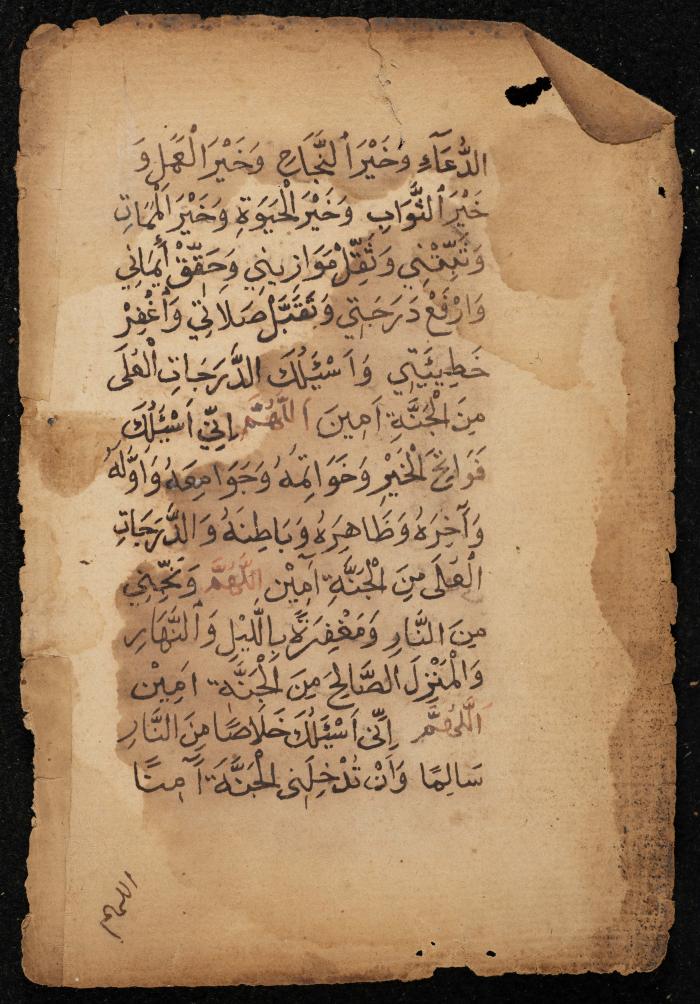 الدُّعَآءِ وَخَيْرَ ٱلنَّجَاحِ وَخَيْرَ الْعَمَلِ وَ
خَيْرَ ٱلثَّوَابِ وَخَيْرَ الْحَيَوٰةِ وَخَيْرَ الْمَمَاتِ
وَثَبِّتْنِي وَثَقِّلْ مَوَازِيني وَحَقِّقْ أَيمَانِي
وَارْفَعْ دَرَجَتِي وَتَقَبَّلْ صَلَاتِي وَٱغْفِرْ
خَطِيئَتِي وَاَسْئَلُكَ الدَّرَجَاتِ الْعُلَى
مِنَ الْجَنَّةِ اٰمِينَ اَللّٰهُمَّ اِنِّي اَسْئَلُكَ
فَوَاتِحَ الْخَيْرِ وَخَوَاتِمَهُ وَجَوَامِعَهُ وَاَوَّلَهُ
وَآخِرَهُ وَظَاهِرَهُ وَبَاطِنَهُ وَالدَّرَجَاتِ
الْعُلَى مِنَ الْجَنَّةِ اٰمِيْن اَللّٰهُمَّ وَنَجِّنِي
مِنَ النَّارِ وَمَغْفِرَةً بِاللَّيْلِ وَٱلنَّهَارِ
وَالْمَنْزِلَ الصَّالِحَ مِنَ الْجَنَّةِ اٰمِيْن
اَللّٰهُمَّ اِنِّي اَسْئَلُكَ خَلَاصًا مِنَ النَّارِ
سَالِمًا وَاَنْ تُدْخِلَنِي الْجَنَّةَ اٰمِنًا
اللهم